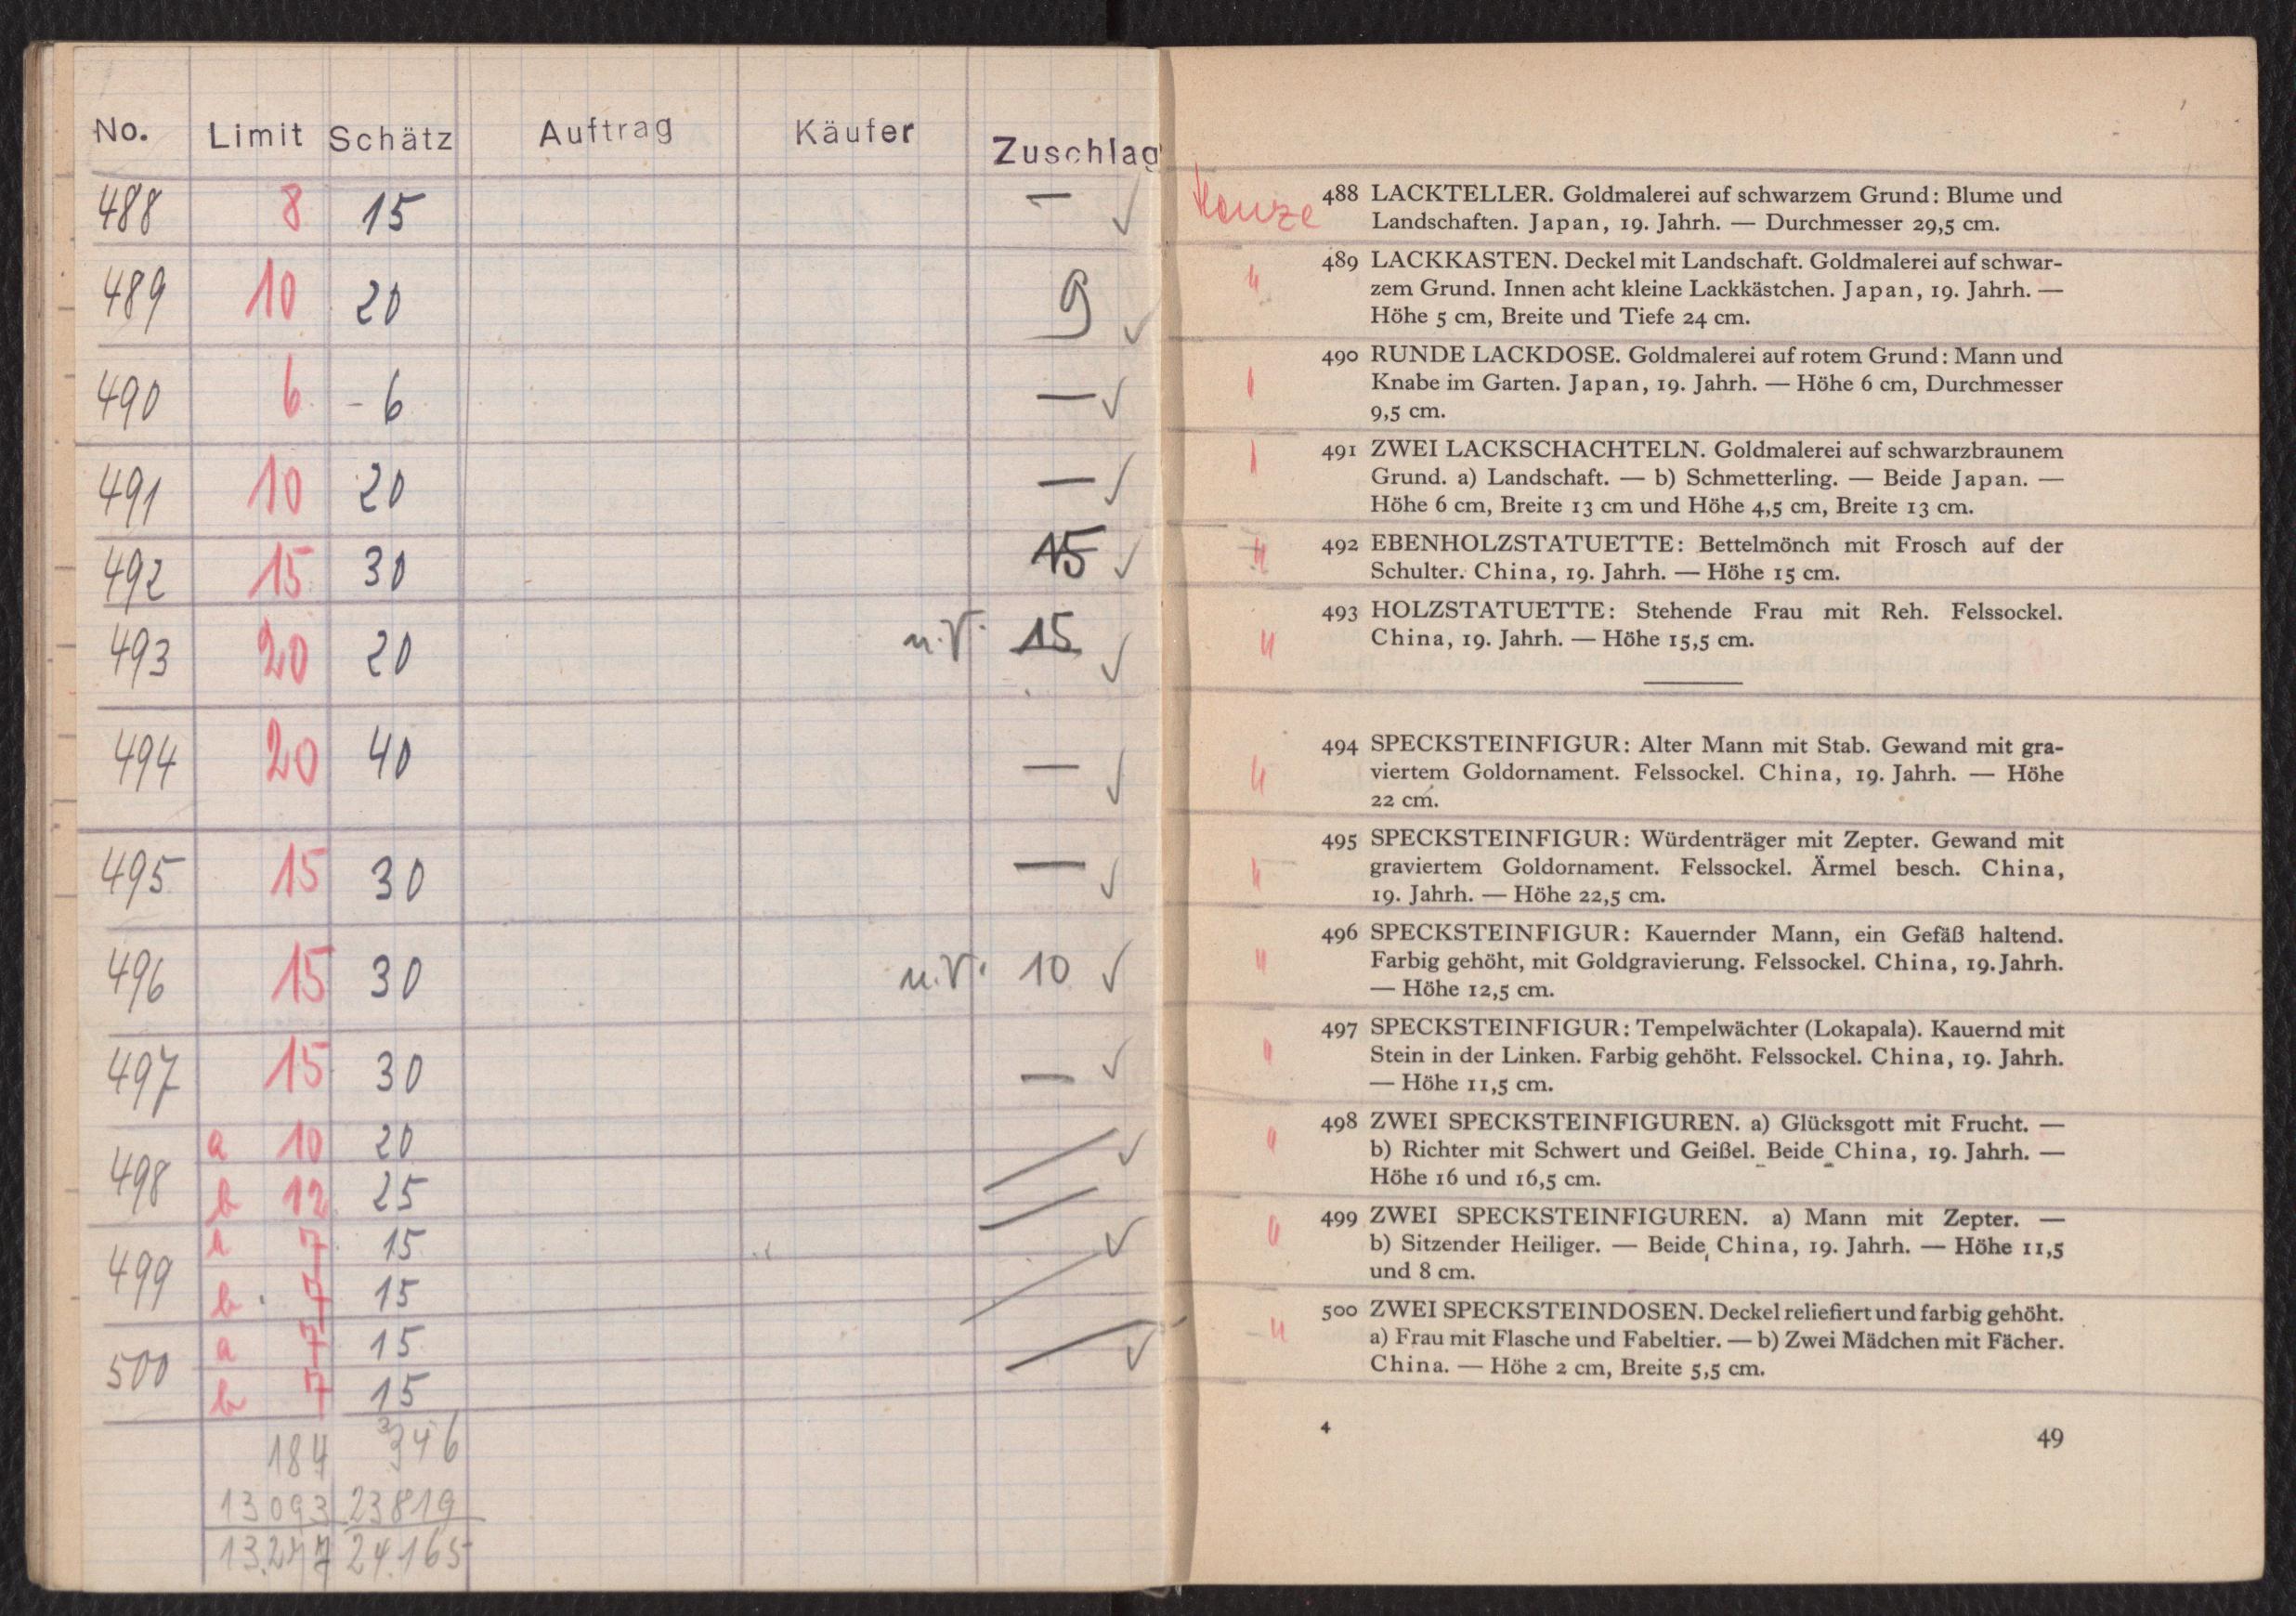 No. Limit Schätz Auftrag Käufer Zuschlag
488 8 15 — ✓
489 10 20 9 ✓
490 6 - 6 — ✓
491 10 20 — ✓
492 15 30 15 ✓
493 20 20 u.V. 15 ✓
494 20 40 — ✓
495 15 30 — ✓
496 15 30 u.V. 10 ✓
497 15 30 — ✓
498 a 10 20 — ✓
b 12 25 —
499 a 7 15 — ✓
b 7 15
500 a 7 15 — ✓
b 7 15
184 346
13093 23819
13.277 24.165
488 LACKTELLER. Goldmalerei auf schwarzem Grund: Blume und
Landschaften. Japan, 19. Jahrh. — Durchmesser 29,5 cm.
489 LACKKASTEN. Deckel mit Landschaft. Goldmalerei auf schwar-
zem Grund. Innen acht kleine Lackkästchen. Japan, 19. Jahrh. —
Höhe 5 cm, Breite und Tiefe 24 cm.
490 RUNDE LACKDOSE. Goldmalerei auf rotem Grund: Mann und
Knabe im Garten. Japan, 19. Jahrh. — Höhe 6 cm, Durchmesser
9,5 cm.
491 ZWEI LACKSCHACHTELN. Goldmalerei auf schwarzbraunem
Grund. a) Landschaft. — b) Schmetterling. — Beide Japan. —
Höhe 6 cm, Breite 13 cm und Höhe 4,5 cm, Breite 13 cm.
492 EBENHOLZSTATUETTE: Bettelmönch mit Frosch auf der
Schulter. China, 19. Jahrh. — Höhe 15 cm.
493 HOLZSTATUETTE: Stehende Frau mit Reh. Felssockel.
China, 19. Jahrh. — Höhe 15,5 cm.
494 SPECKSTEINFIGUR: Alter Mann mit Stab. Gewand mit gra-
viertem Goldornament. Felssockel. China, 19. Jahrh. — Höhe
22 cm.
495 SPECKSTEINFIGUR: Würdenträger mit Zepter. Gewand mit
graviertem Goldornament. Felssockel. Ärmel besch. China,
19. Jahrh. — Höhe 22,5 cm.
496 SPECKSTEINFIGUR: Kauernder Mann, ein Gefäß haltend.
Farbig gehöht, mit Goldgravierung. Felssockel. China, 19. Jahrh.
— Höhe 12,5 cm.
497 SPECKSTEINFIGUR: Tempelwächter (Lokapala). Kauernd mit
Stein in der Linken. Farbig gehöht. Felssockel. China, 19. Jahrh.
— Höhe 11,5 cm.
498 ZWEI SPECKSTEINFIGUREN. a) Glücksgott mit Frucht. —
b) Richter mit Schwert und Geißel. Beide China, 19. Jahrh. —
Höhe 16 und 16,5 cm.
499 ZWEI SPECKSTEINFIGUREN. a) Mann mit Zepter. —
b) Sitzender Heiliger. — Beide China, 19. Jahrh. — Höhe 11,5
und 8 cm.
500 ZWEI SPECKSTEINDOSEN. Deckel reliefiert und farbig gehöht.
a) Frau mit Flasche und Fabeltier. — b) Zwei Mädchen mit Fächer.
China. — Höhe 2 cm, Breite 5,5 cm.
4 49